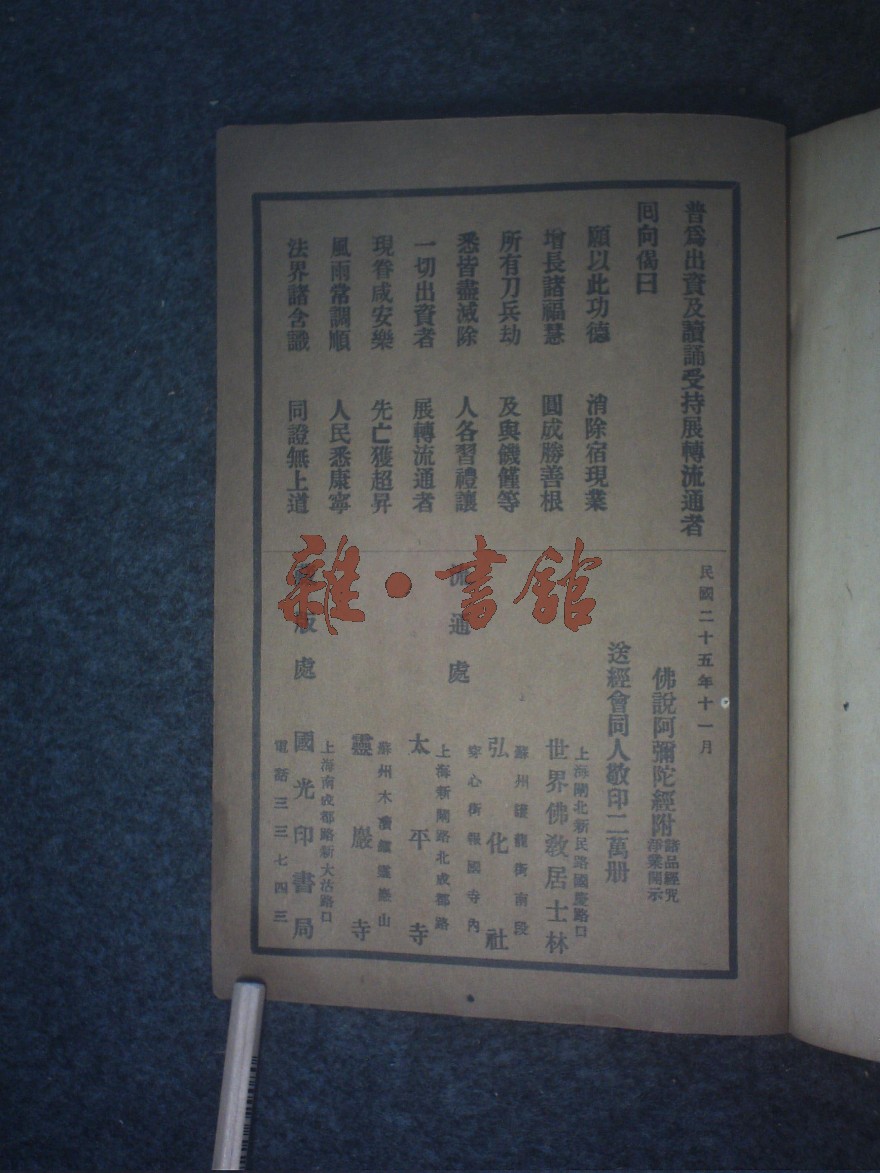 普爲出資及讀誦受持展轉流通者
回向偈曰
願以此功德 消除宿現業
增長諸福慧 圓成勝善根
所有刀兵劫 及與饑饉等
悉皆盡滅除 人各習禮讓
一切出資者 展轉流通者
現眷咸安樂 先亡獲超昇
風雨常調順 人民悉康寧
法界諸含識 同證無上道
民國二十五年十一月
佛說阿彌陀經附
諸品經咒
淨業開示
送經會同人敬印二萬册
流通處
上海閘北新民路國慶路口
世界佛敎居士林
蘇州護龍街南段
穿心街報國寺內
弘化社
上海新閘路北成都路
太平寺
蘇州木瀆靈巖山
靈巖寺
版處
上海南成都路新大沽路口
國光印書局
電話三三七四三
雜·書館